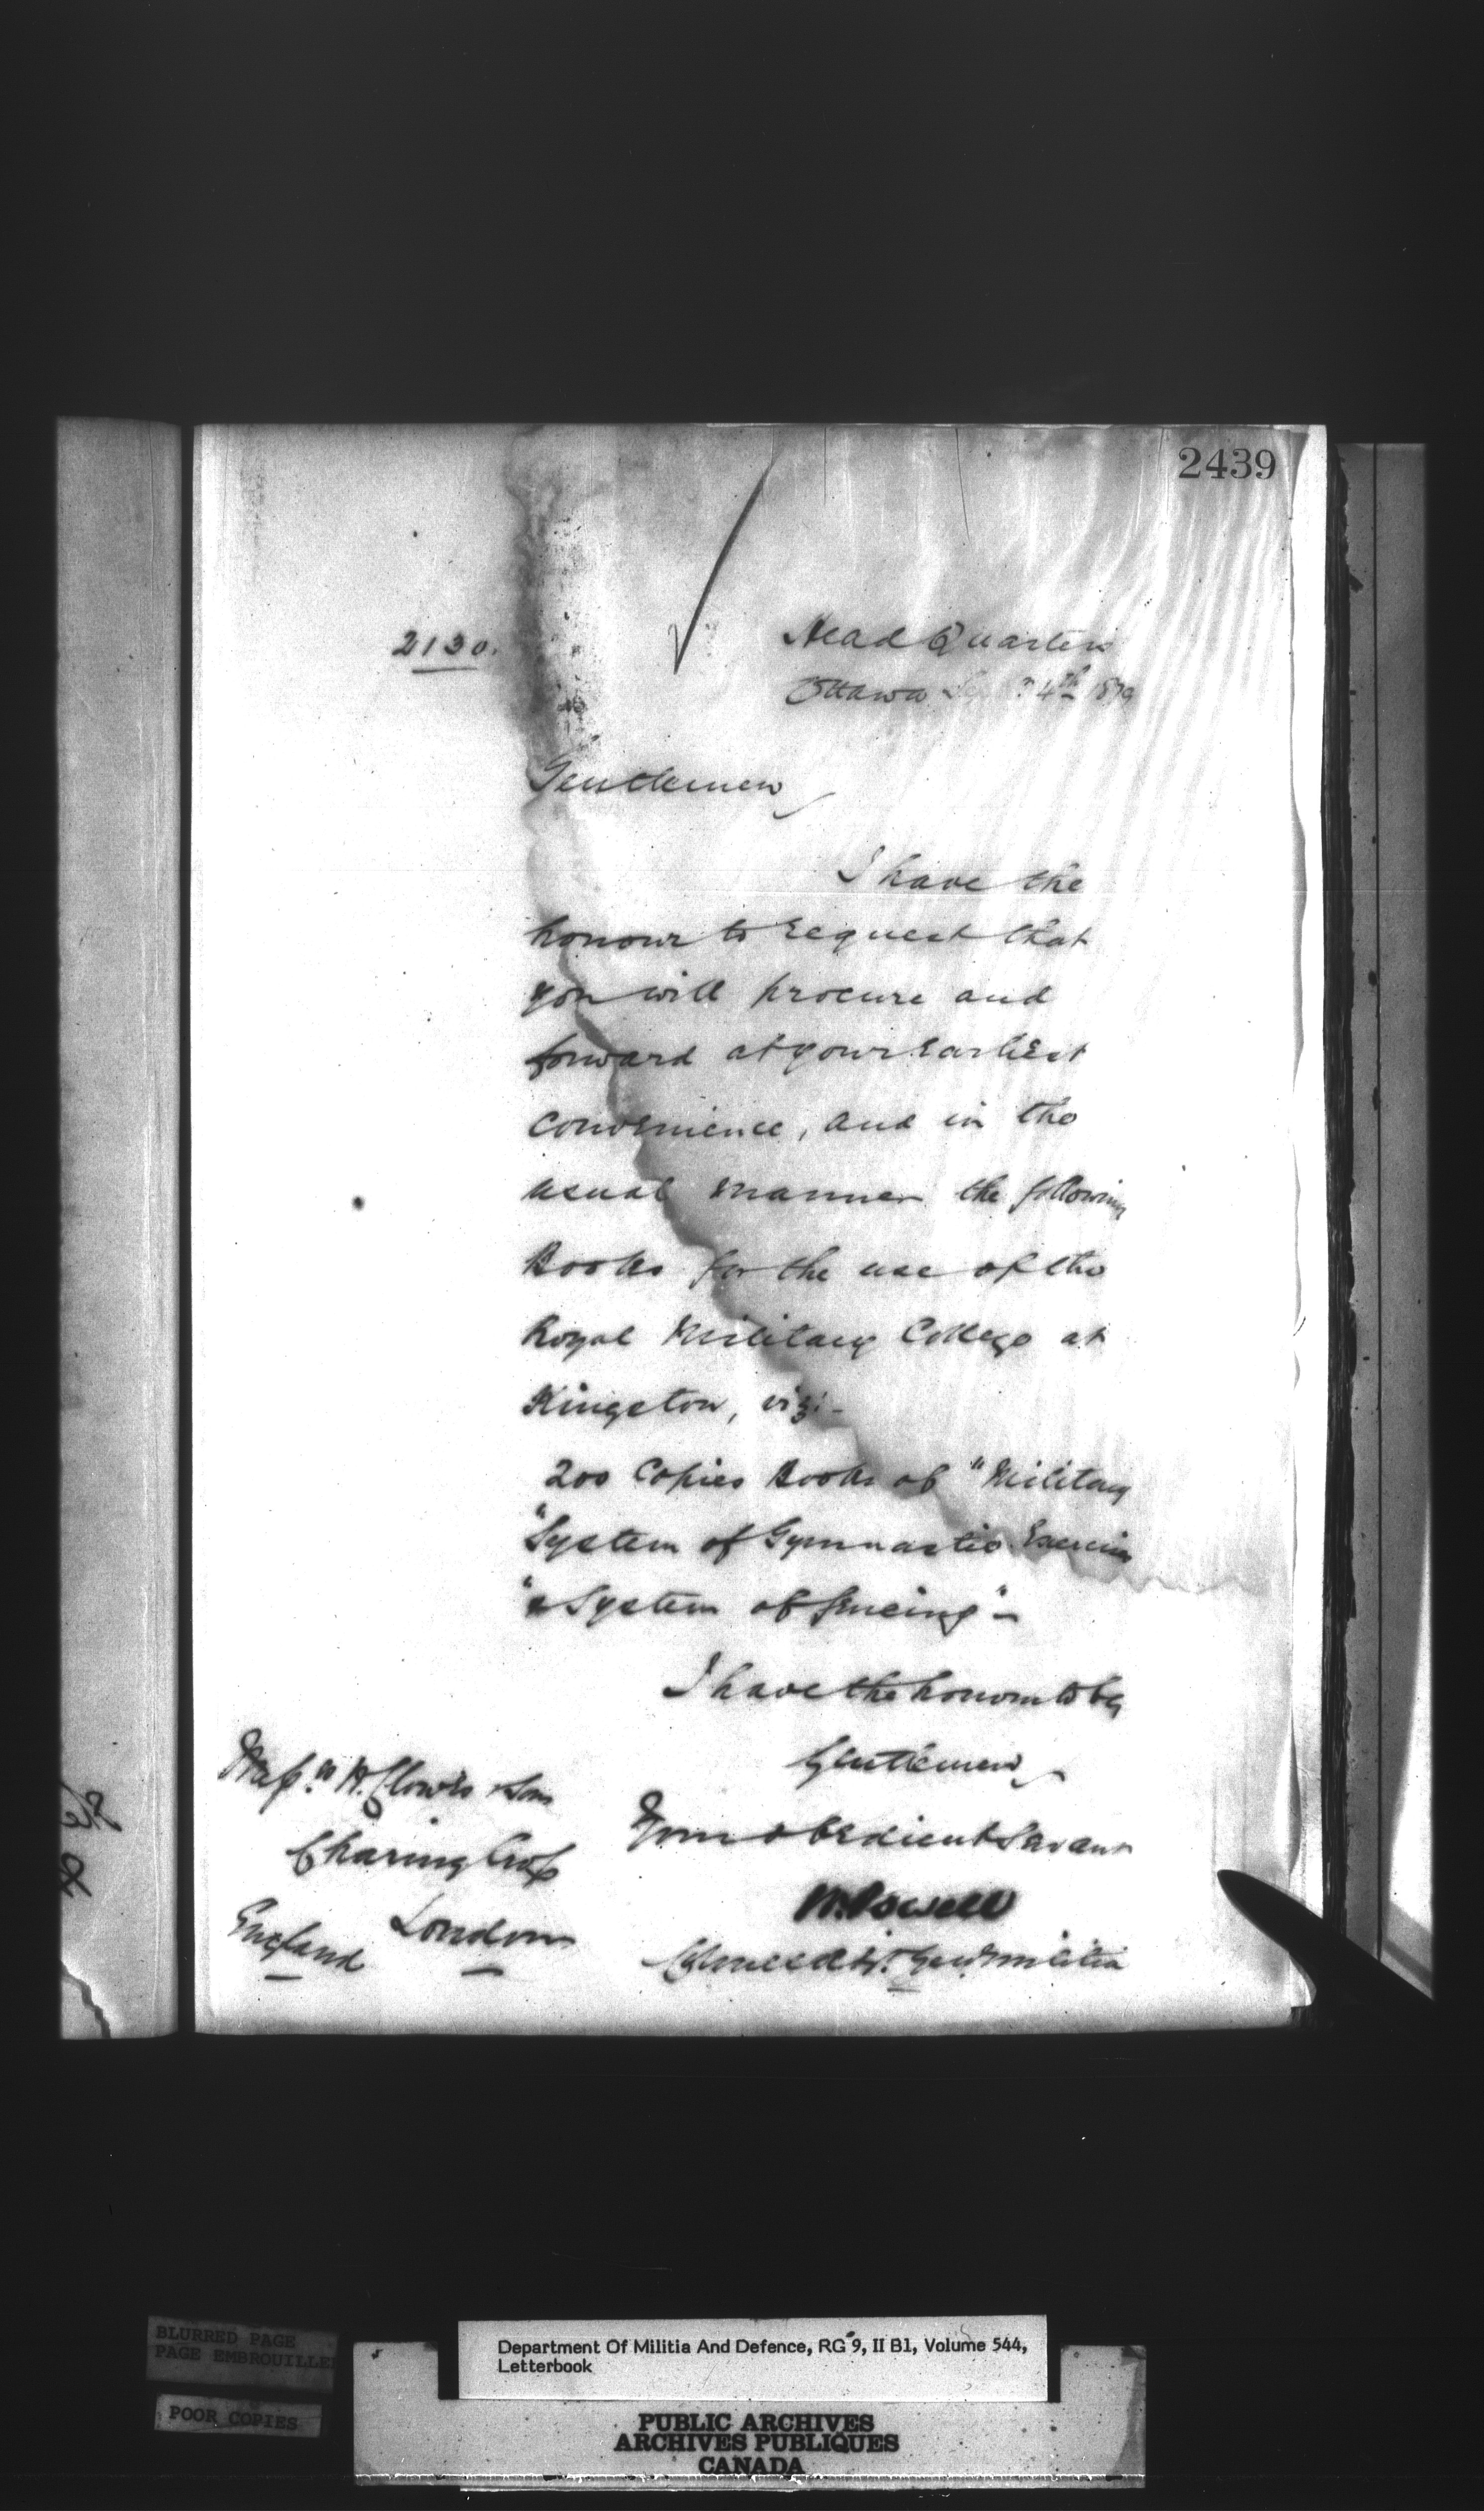 2439
2130.
Head Quarters
Ottawa 4th 1879
Gentlemen
I have the
honour to request that
you will procure and
forward at your Earliest
Convenience, and in the
usual manner the following
Books for the use of the
Royal Military College at
Kingston, viz:-
200 Copies Books of "Military
"System of Gymnastic Exercise
"& System of fencing"-
I have the honour to be
Gentlemen
Your obedient Servant
W. Powell
Colonel & Adjt. Genl Militia
Messrs W. Clowes & Son
Charing Cross
London
England
BLURRED PAGE
PAGE EMBROUILLEE
POOR COPIES
Department Of Militia And Defence, RG 9, II B1, Volume 544,
Letterbook
PUBLIC ARCHIVES
ARCHIVES PUBLIQUES
CANADA